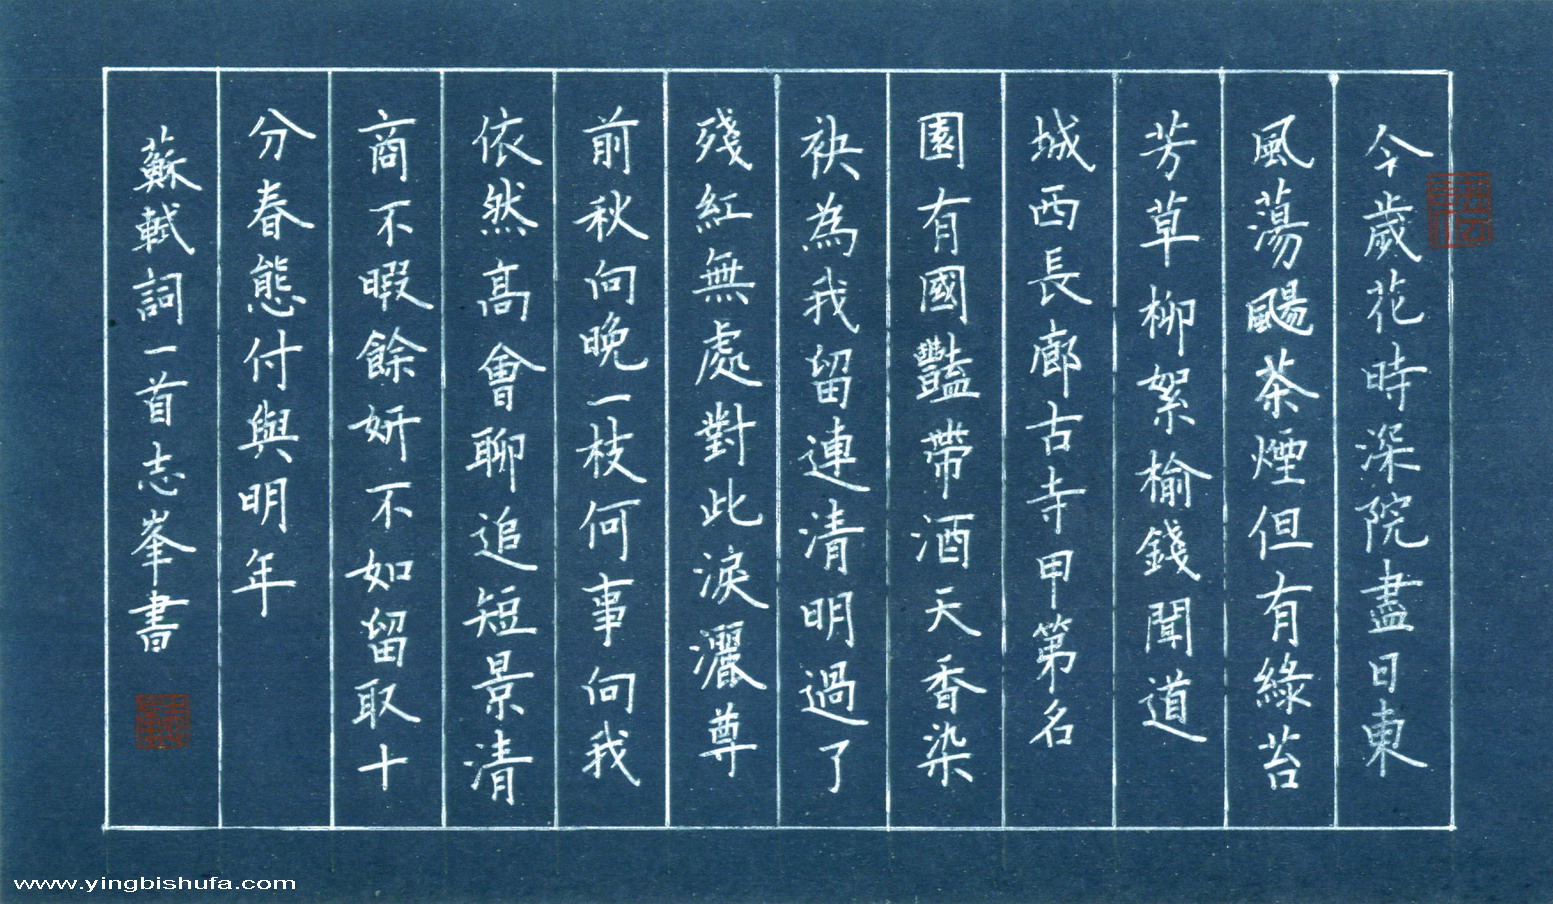 今歲花時深院盡日東
風蕩颺茶煙但有綠苔
芳草柳絮榆錢聞道
城西長廊古寺甲第名
園有國豔帶酒天香染
袂為我留連清明過了
殘紅無處對此淚灑尊
前秋向晚一枝何事向我
依然高會聊追短景清
商不暇餘妍不如留取十
分春態付與明年
蘇軾詞一首志峯書
www.yingbishufa.com